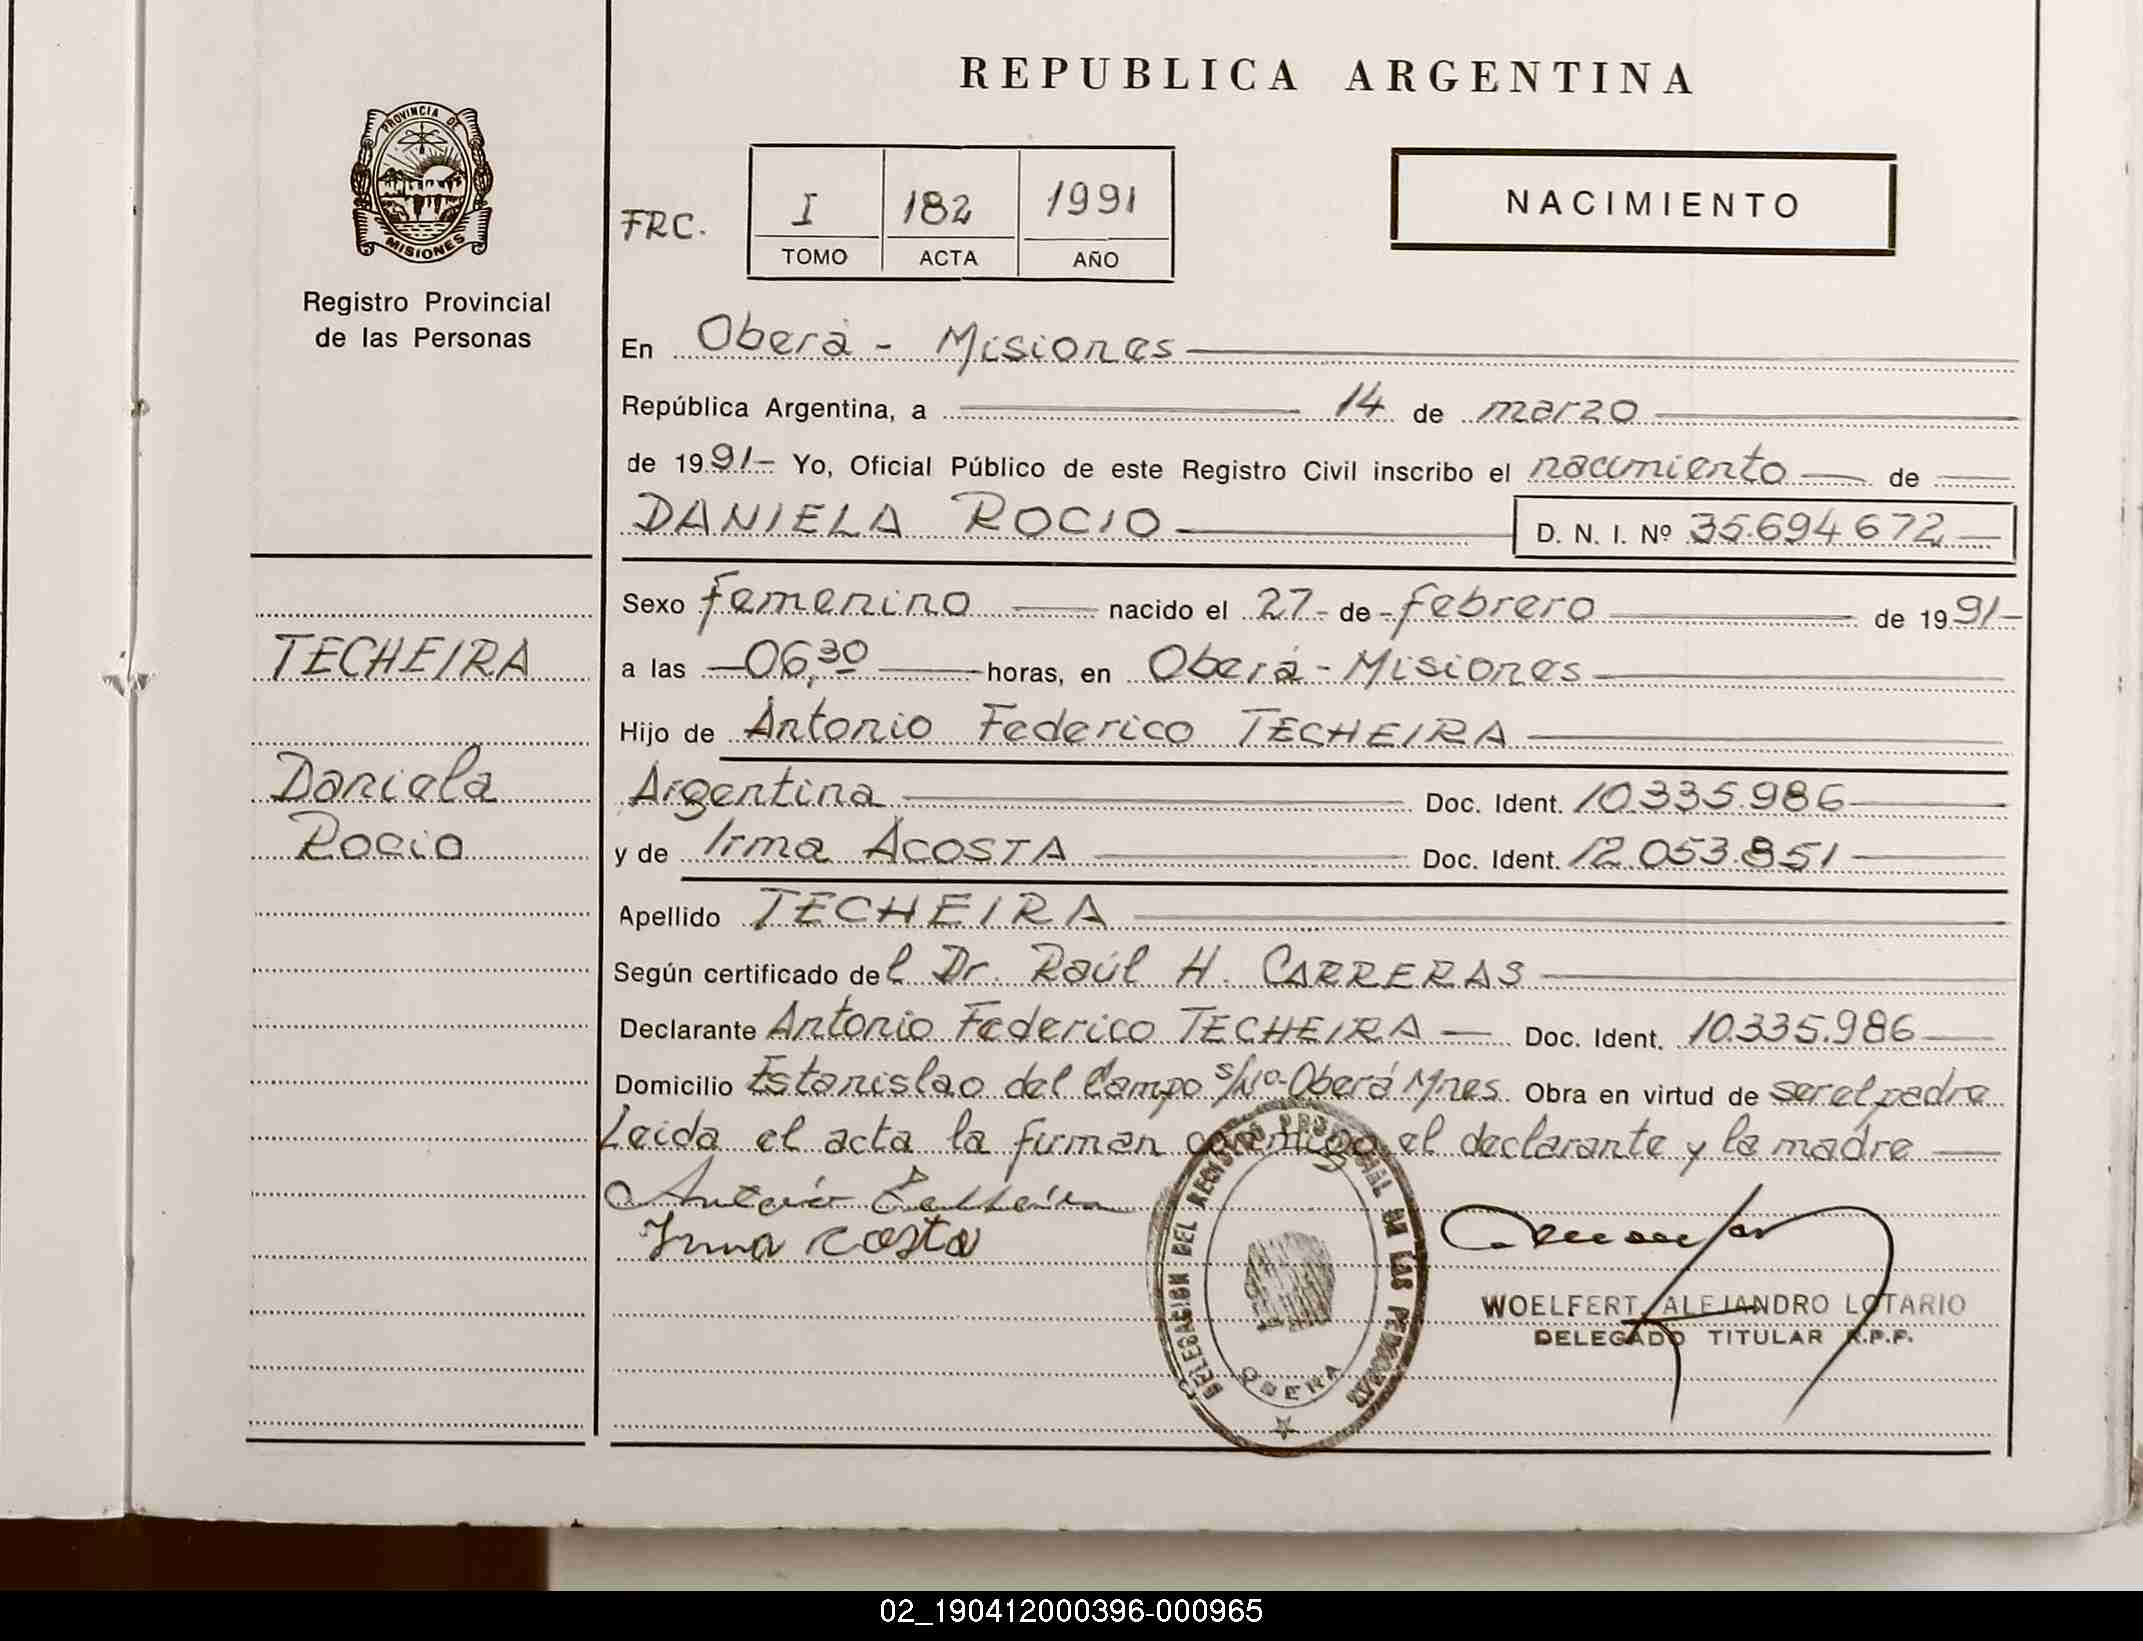 REPUBLICA ARGENTINA
PROVINCIA DE
MISIONES
Registro Provincial
de las Personas
FRC.
I 182 1991
TOMO ACTA AÑO
NACIMIENTO
En Oberá - Misiones
República Argentina, a 14 de marzo
de 1991- Yo, Oficial Público de este Registro Civil inscribo el nacimiento de
DANIELA ROCIO D. N. I. Nº 35.694.672
TECHEIRA
Daniela
Rocio
Sexo femenino nacido el 27- de -febrero de 1991-
a las 06,30 horas, en Oberá - Misiones
Hijo de Antonio Federico TECHEIRA
Argentina Doc. Ident. 10.335.986
y de Irma ACOSTA Doc. Ident. 12.053.851
Apellido TECHEIRA
Según certificado del Dr. Raúl H. CARRERAS
Declarante Antonio Federico TECHEIRA Doc. Ident. 10.335.986
Domicilio Estanislao del Campo s/Nº-Oberá Mnes. Obra en virtud de ser el padre
Leida el acta la firman conmigo el declarante y la madre
Irma costa
DELEGACION DEL REGISTRO PROVINCIAL DE LAS PERSONAS
OBERA
WOELFERT, ALEJANDRO LOTARIO
DELEGADO TITULAR R.P.P.
02_190412000396-000965